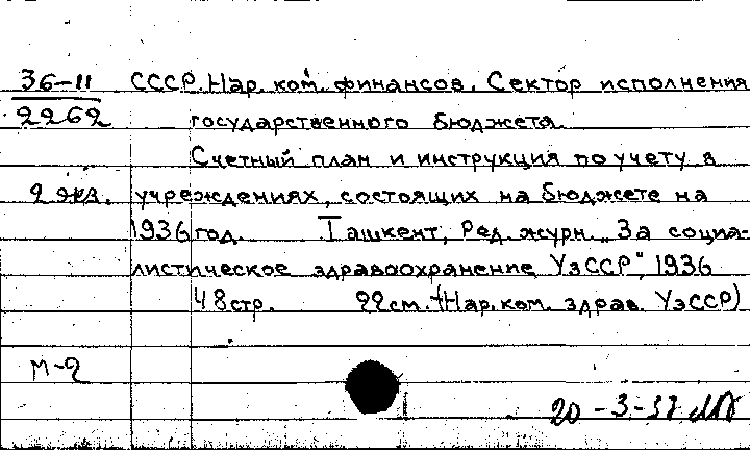 36-11 СССР. Нар. ком. финансов. Сектор исполнения
2262 государственного бюджета.
Счетный план и инструкция по учету в
2 экз. учреждениях, состоящих на бюджете на
1936 год. Ташкент, Ред. журн. „За социа-
листическое здравоохранение УзССР", 1936
48 стр. 22 см. (Нар. ком. здрав. УзССР)
М-2
20-3-37